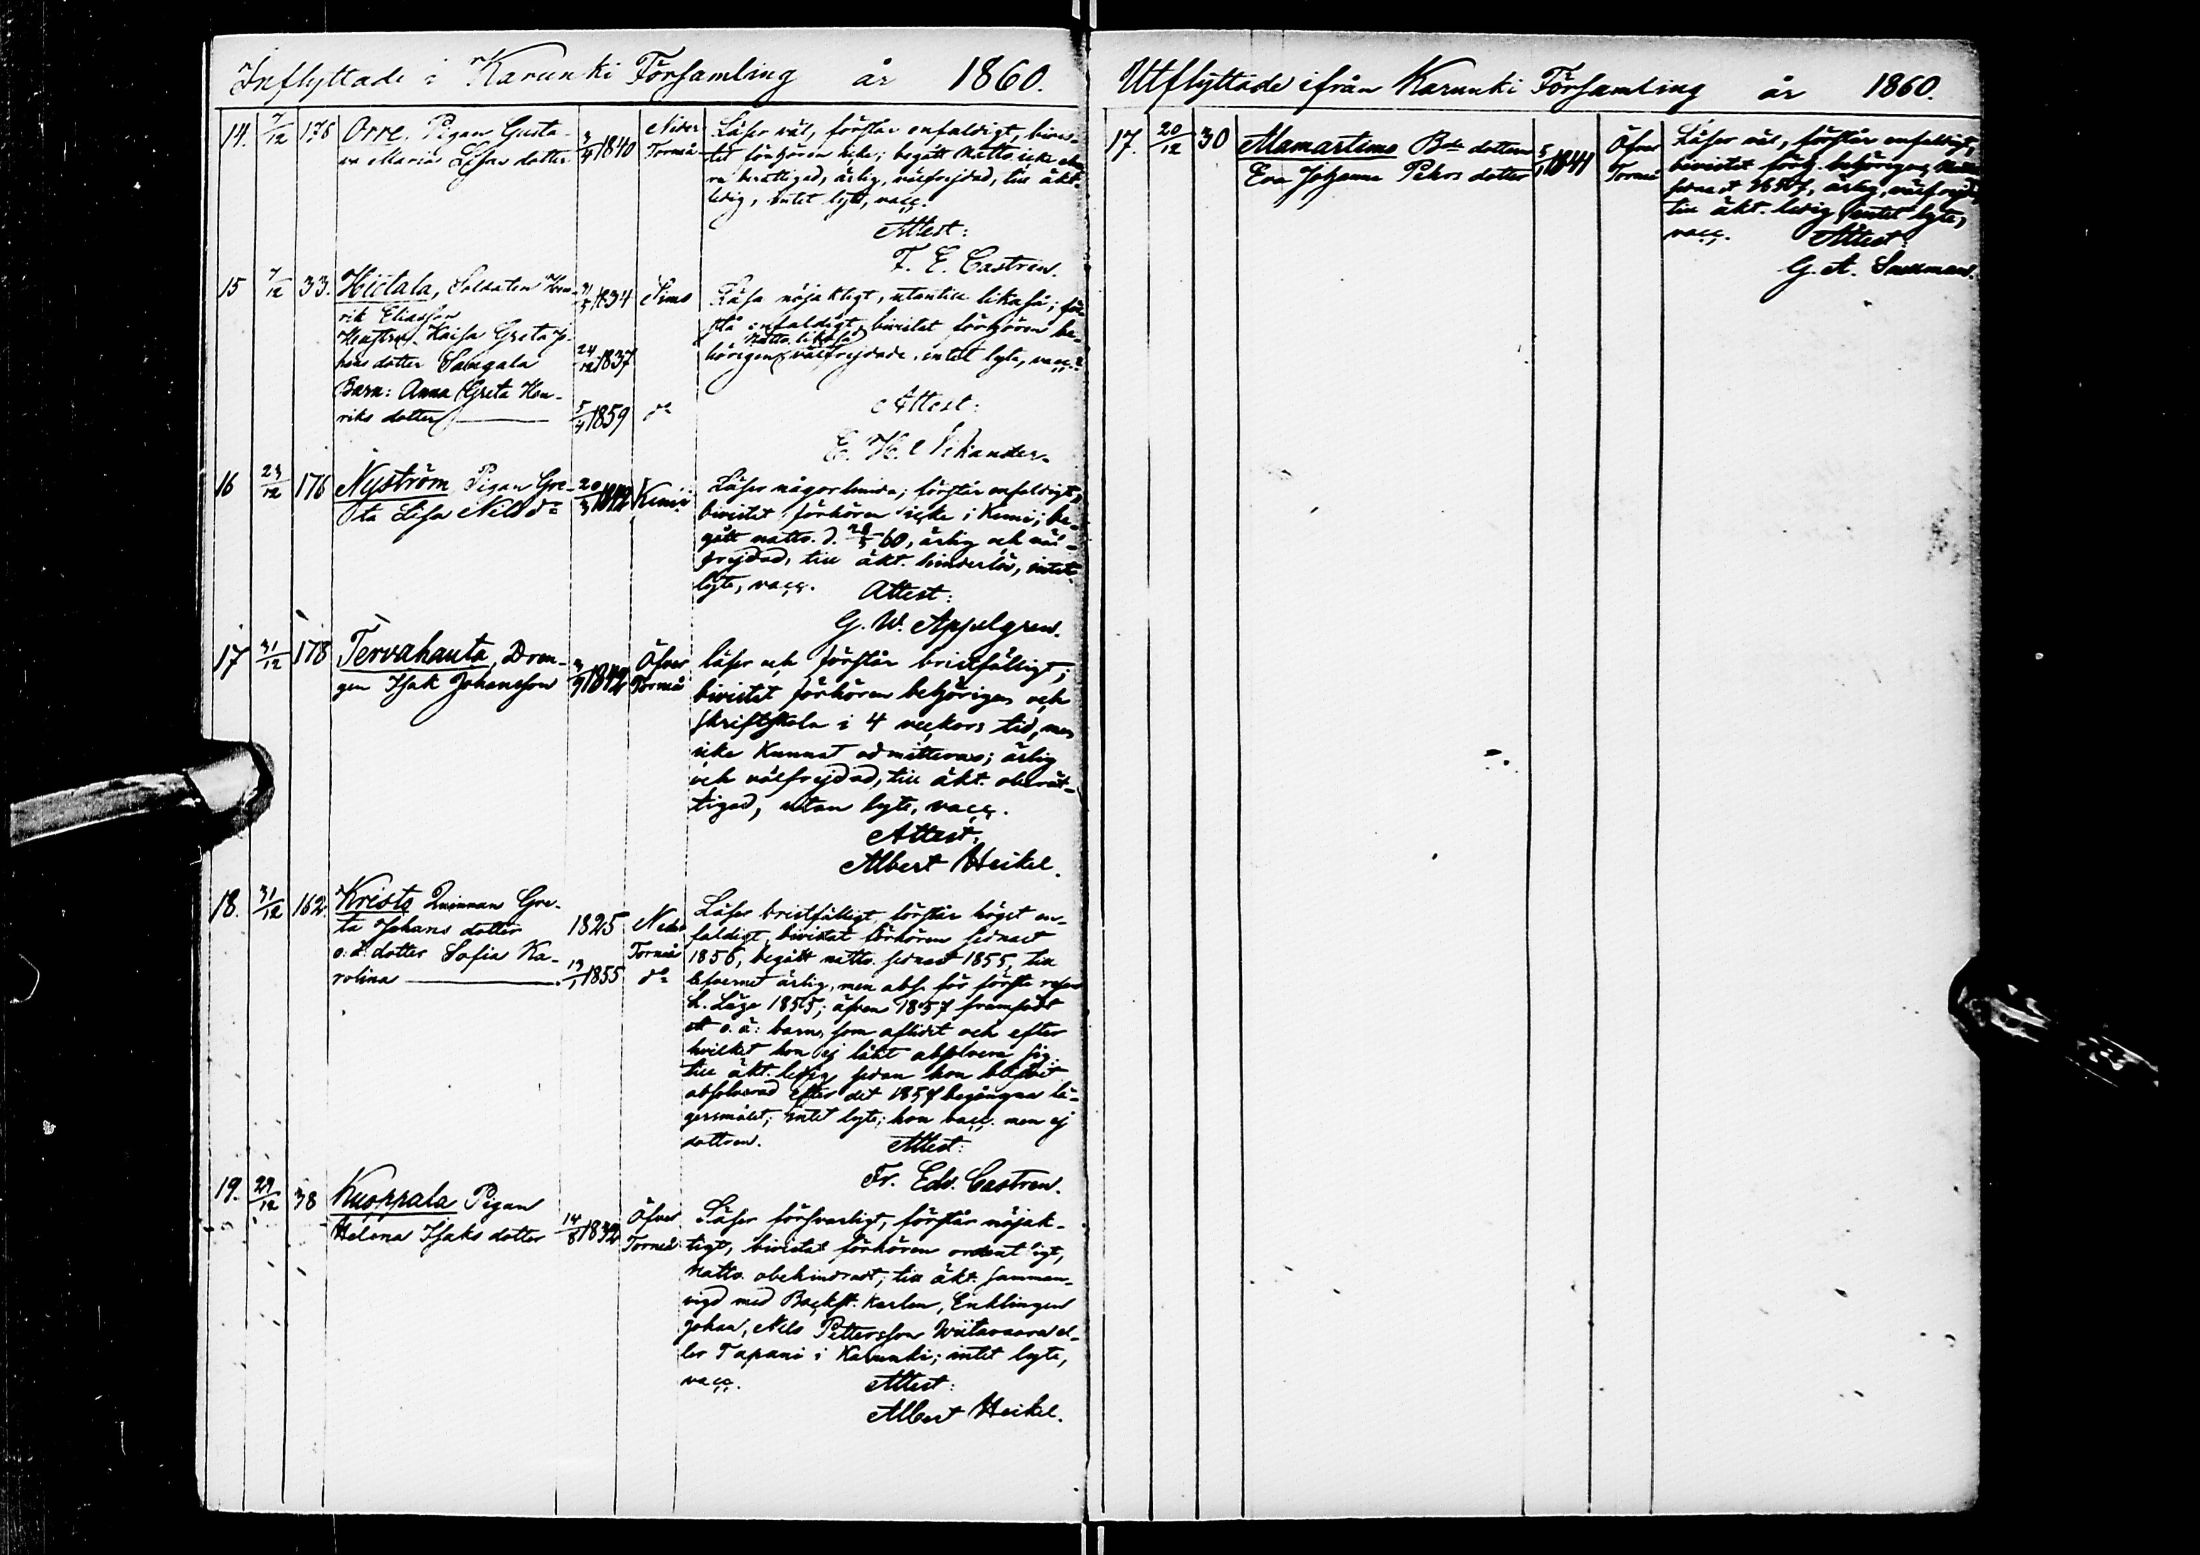 Inflyttade i Karunki Församling år 1860.
14. 7/12 178 Orre, Pigan Gusta-
va Maria Lisas dotter
3/4 1840
Neder
Torneå
Läser väl, förstår enfaldigt, bivis-
tat förhören icke; begått Nattv. icke
berättigad, ärlig, välfrejdad, till äkt.
ledig, intet lyte, vacc.
Attest:
F. E. Castrén.
15 7/12 33. Hiitala, Soldaten Hen-
rik Eliasson
Hustru Kaisa Greta Jo-
hans dotter Saingala
Barn: Anna Greta Hen-
riks dotter
31/3 1834
24/12 1837
5/4 1859
Simo
do
Läsa nöjaktigt, utantill likaså; för-
stå enfaldigt, bivistat förhören be-
Nattv. likaså
hörigen, välfrejdade, intet lyte, vacc.
Attest:
E. H.
16 23/12 176 Nyström Pigan Gre-
ta Lisa Nils dr
20/3 1842
Kemi
Läser någorlunda; förstår enfaldigt,
bivistat förhören icke i Kemi; be-
gått nattv. d. 60, ärlig och väl-
frejdad, till äkt. hinderlös, intet
lyte, vacc. Attest:
G. W. Appelgren.
17 31/12 178 Tervahauta, Dren-
gen Isak Johansson
3/9 1842
Öfver
Torneå
läser och förstår bristfälligt;
bivistat förhören behörigen och
skriftskola i 4 veckors tid, men
icke kunnat admitteras; ärlig
och välfrejdad, till äkt. oberät-
tigad, utan lyte, vacc.
Attest:
Albert Heikel.
18. 31/12 162. Kristo Qvinnan Gre-
ta Johans dotter
o. ä. dotter Sofia Ka-
rolina
1825
13/1 1855
Neder
Torneå
do
Läser bristfälligt, förstår högst en-
faldigt, bivistat förhören sednast
1856, begått nattv. sednast 1855, till
lefvernet ärlig, men abs. för första resan
L. Läge 1855; äfven 1857 framfödt
ett o. ä. barn, som aflidit och efter
hvilket hon ej låtit absolvera sig.
till äkt. ledig sedan hon blifvit
absolverad efter det 1857 begångna lä-
gersmålet; intet lyte; hon vacc. men ej
dottren. Attest:
Fr. Edv. Castren.
19. 29/12 38 Kuoppala Pigan
Helena Isaks dotter
14/8 1832
Öfver
Torneå
Läser försvarligt, förstår nöjak-
tigt, bivistat förhören ordentligt,
Nattv. obehindradt; till äkt. samman-
vigd med Backst. karlen, Enklingen
Johan, Nils Pettersson Wiitavaara el-
ler Tapani i Karunki; intet lyte,
vacc. Attest:
Albert Heikel.
Utflyttade ifrån Karunki Församling år 1860.
17. 20/12 30 Mamartimo Bde dottern
Eva Johanna Pehrs dotter
1841
Öfver
Torneå
Läser väl, förstår enfaldigt,
bivistat förh. behörigen, Nattv.
sednast, ärlig, välfrejd,
till äkt. ledig, intet lyte,
vacc. Attest:
G. A. Snellman.